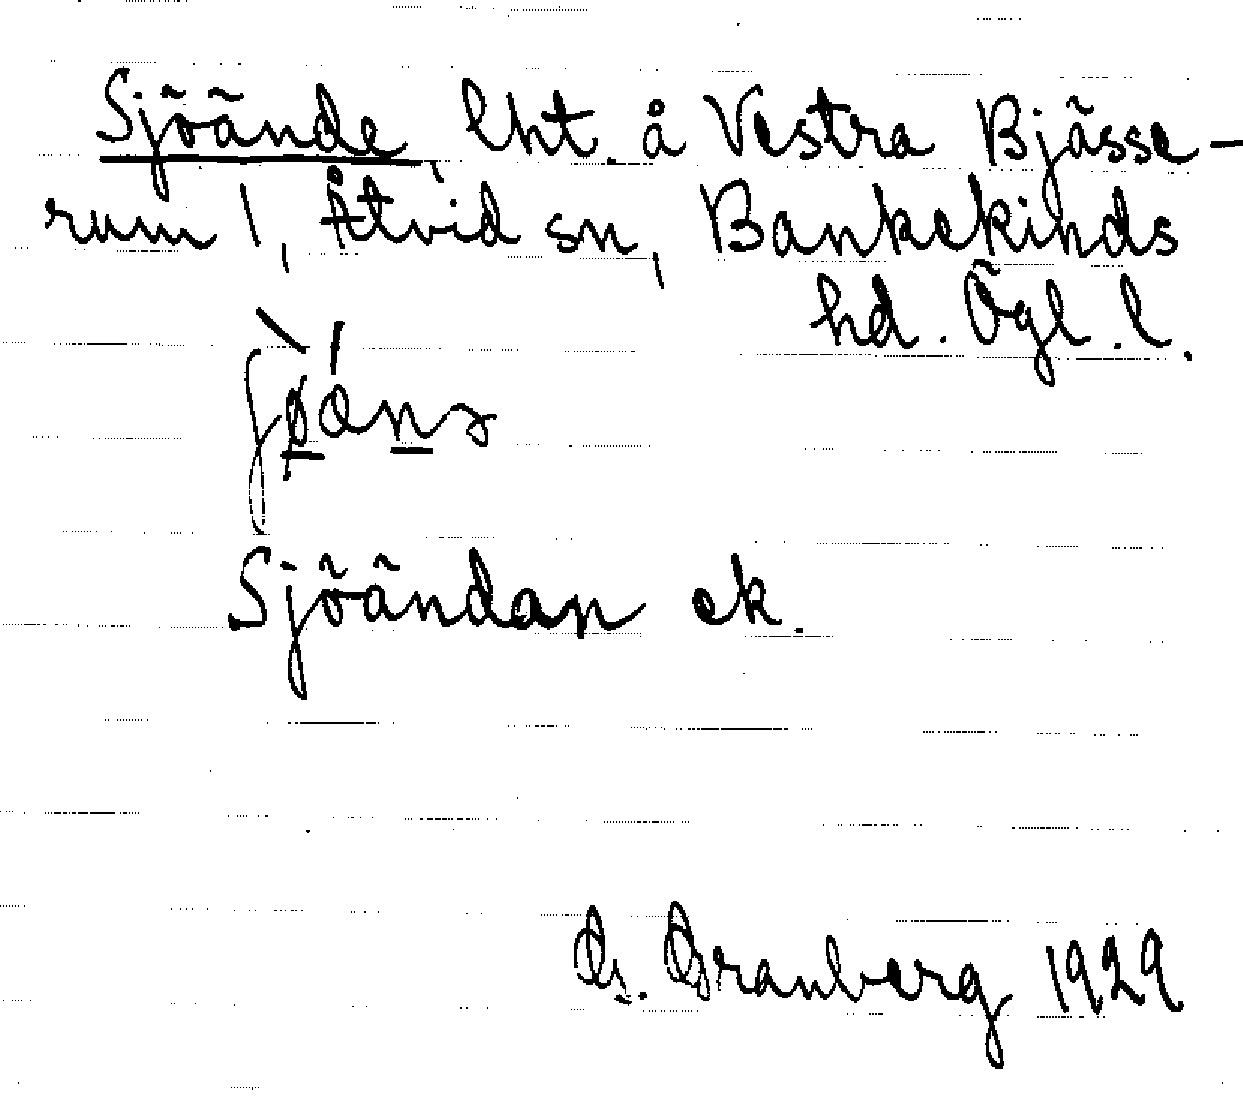 Sjöände, lht. å Vestra Bjässe-
rum 1, Åtvid sn, Bankekinds
hd. Ögl. l.
Sjöändan ek.
G. Granberg 1929